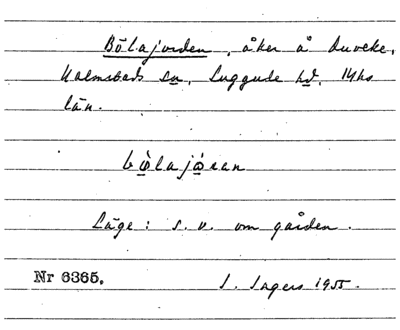 Bölajorden, åker å Duveke,
Halmstads sn, Luggude hd, Mhs
län.
bölajoran
Läge: s. v. om gården.
Nr 6365. I. Ingers 1955.